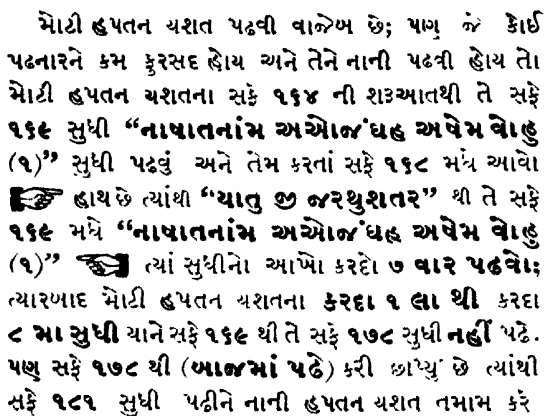 મોટી હપતન યશત પઢવી વાજેબ છે; પણ જે કોઈ
પઢનારને કમ ફુરસદ હોય અને તેને નાની પઢવી હોય તો
મોટી હપતન યશતના સફે ૧૬૪ ની શરૂઆતથી તે સફે
૧૬૯ સુધી “નાષાતનાંમ અઓજંઘહ અષેમ વોહુ
(૧)” સુધી પઢવું અને તેમ કરતાં સફે ૧૬૮ મધે આવો
☞ હાથ છે ત્યાંથી “યાતુ જી જરથુશતર” થી તે સફે
૧૬૯ મધે “નાષાતનાંમ અઓજંઘહ અષેમ વોહુ
(૧)” ☜ ત્યાં સુધીનો આખો કરદો ૭ વાર પઢવો;
ત્યારબાદ મોટી હપતન યશતના કરદા ૧ લા થી કરદા
૮ મા સુધી યાને સફે ૧૬૯ થી તે સફે ૧૭૮ સુધી નહીં પઢે.
પણ સફે ૧૭૮ થી (બાજમાં પઢે) કરી છાપ્યું છે ત્યાંથી
સફે ૧૮૧ સુધી પઢીને નાની હપતન યશત તમામ કરે